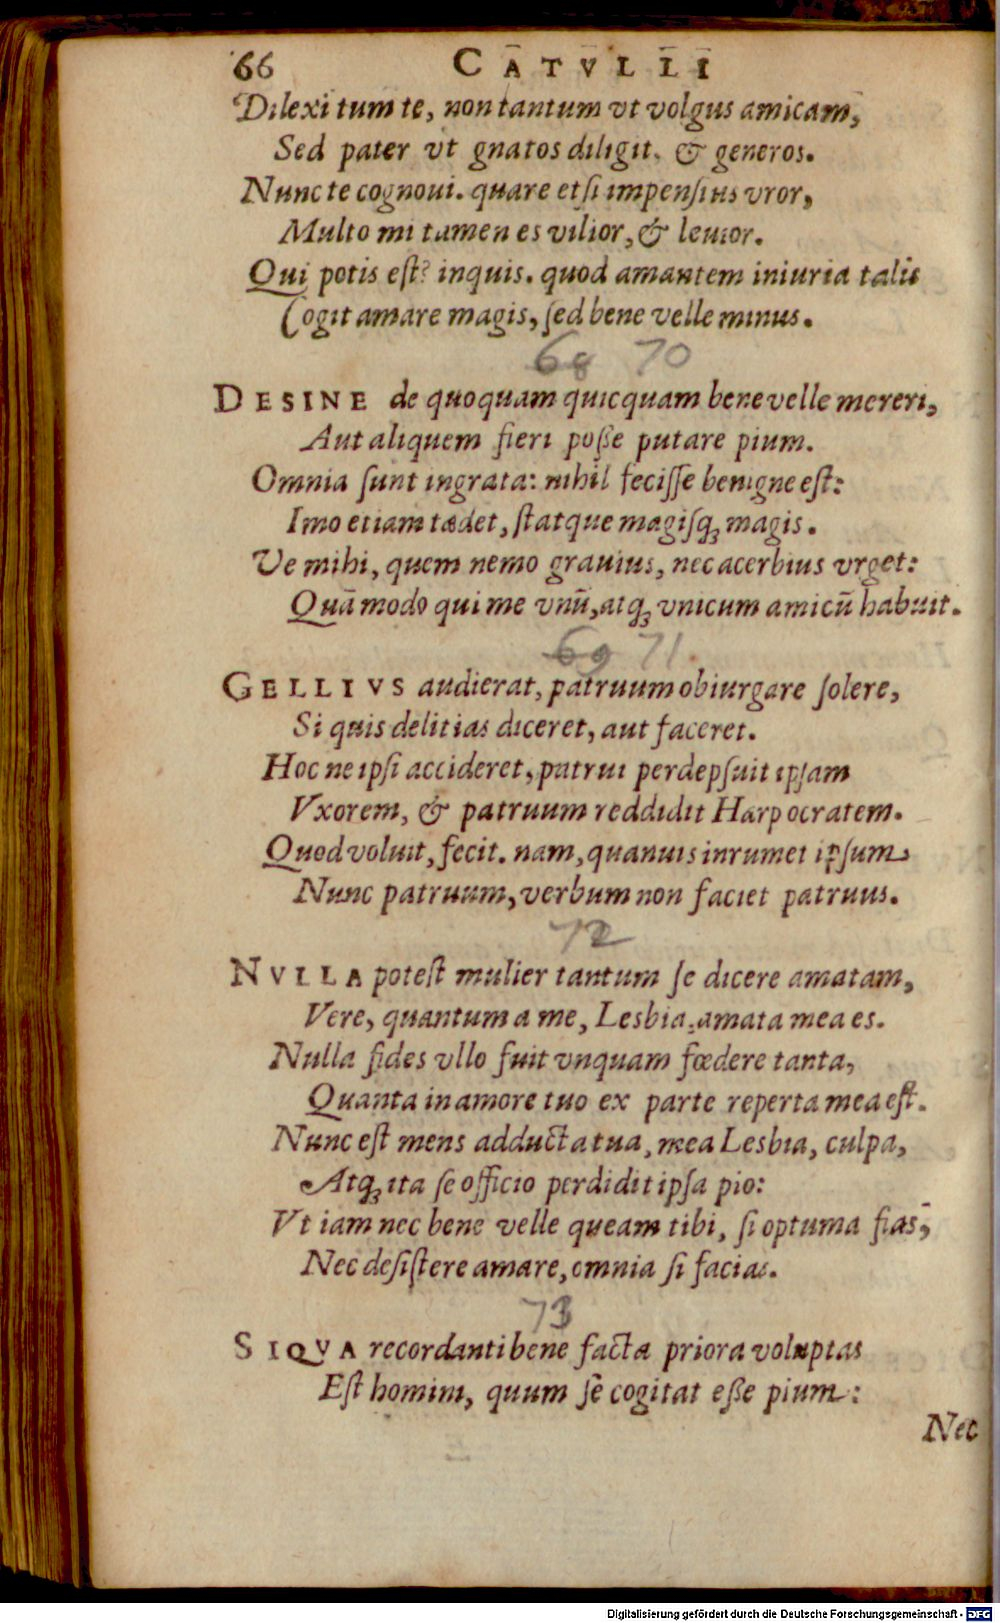 66 CATVLLI
Dilexi tum te, non tantum vt volgus amicam,
Sed pater vt gnatos diligit, & generos.
Nunc te cognoui. quare etsi impensius vror,
Multo mi tamen es vilior, & leuior.
Qui potis est? inquis. quod amantem iniuria talis
Cogit amare magis, sed bene velle minus.
68 70
DESINE de quoquam quicquam bene velle mereri,
Aut aliquem fieri poße putare pium.
Omnia sunt ingrata: nihil fecisse benigne est:
Imo etiam tædet, statque magisq; magis.
Ve mihi, quem nemo grauius, nec acerbius vrget:
Quā modo qui me vnū, atq; vnicum amicū habuit.
69 71
GELLIVS audierat, patruum obiurgare solere,
Si quis delitias diceret, aut faceret.
Hoc ne ipsi accideret, patrui perdepsuit ipsam
Vxorem, & patruum reddidit Harpocratem.
Quod voluit, fecit. nam, quanuis inrumet ipsum
Nunc patruum, verbum non faciet patruus.
72
NVLLA potest mulier tantum se dicere amatam,
Vere, quantum a me, Lesbia, amata mea es.
Nulla fides vllo fuit vnquam fœdere tanta,
Quanta in amore tuo ex parte reperta mea est.
Nunc est mens adducta tua, mea Lesbia, culpa,
Atq; ita se officio perdidit ipsa pio:
Vt iam nec bene velle queam tibi, si optuma fias,
Nec desistere amare, omnia si facias.
73
SIQVA recordanti bene facta priora voluptas
Est homini, quum se cogitat eße pium:
Nec
Digitalisierung gefördert durch die Deutsche Forschungsgemeinschaft - DFG